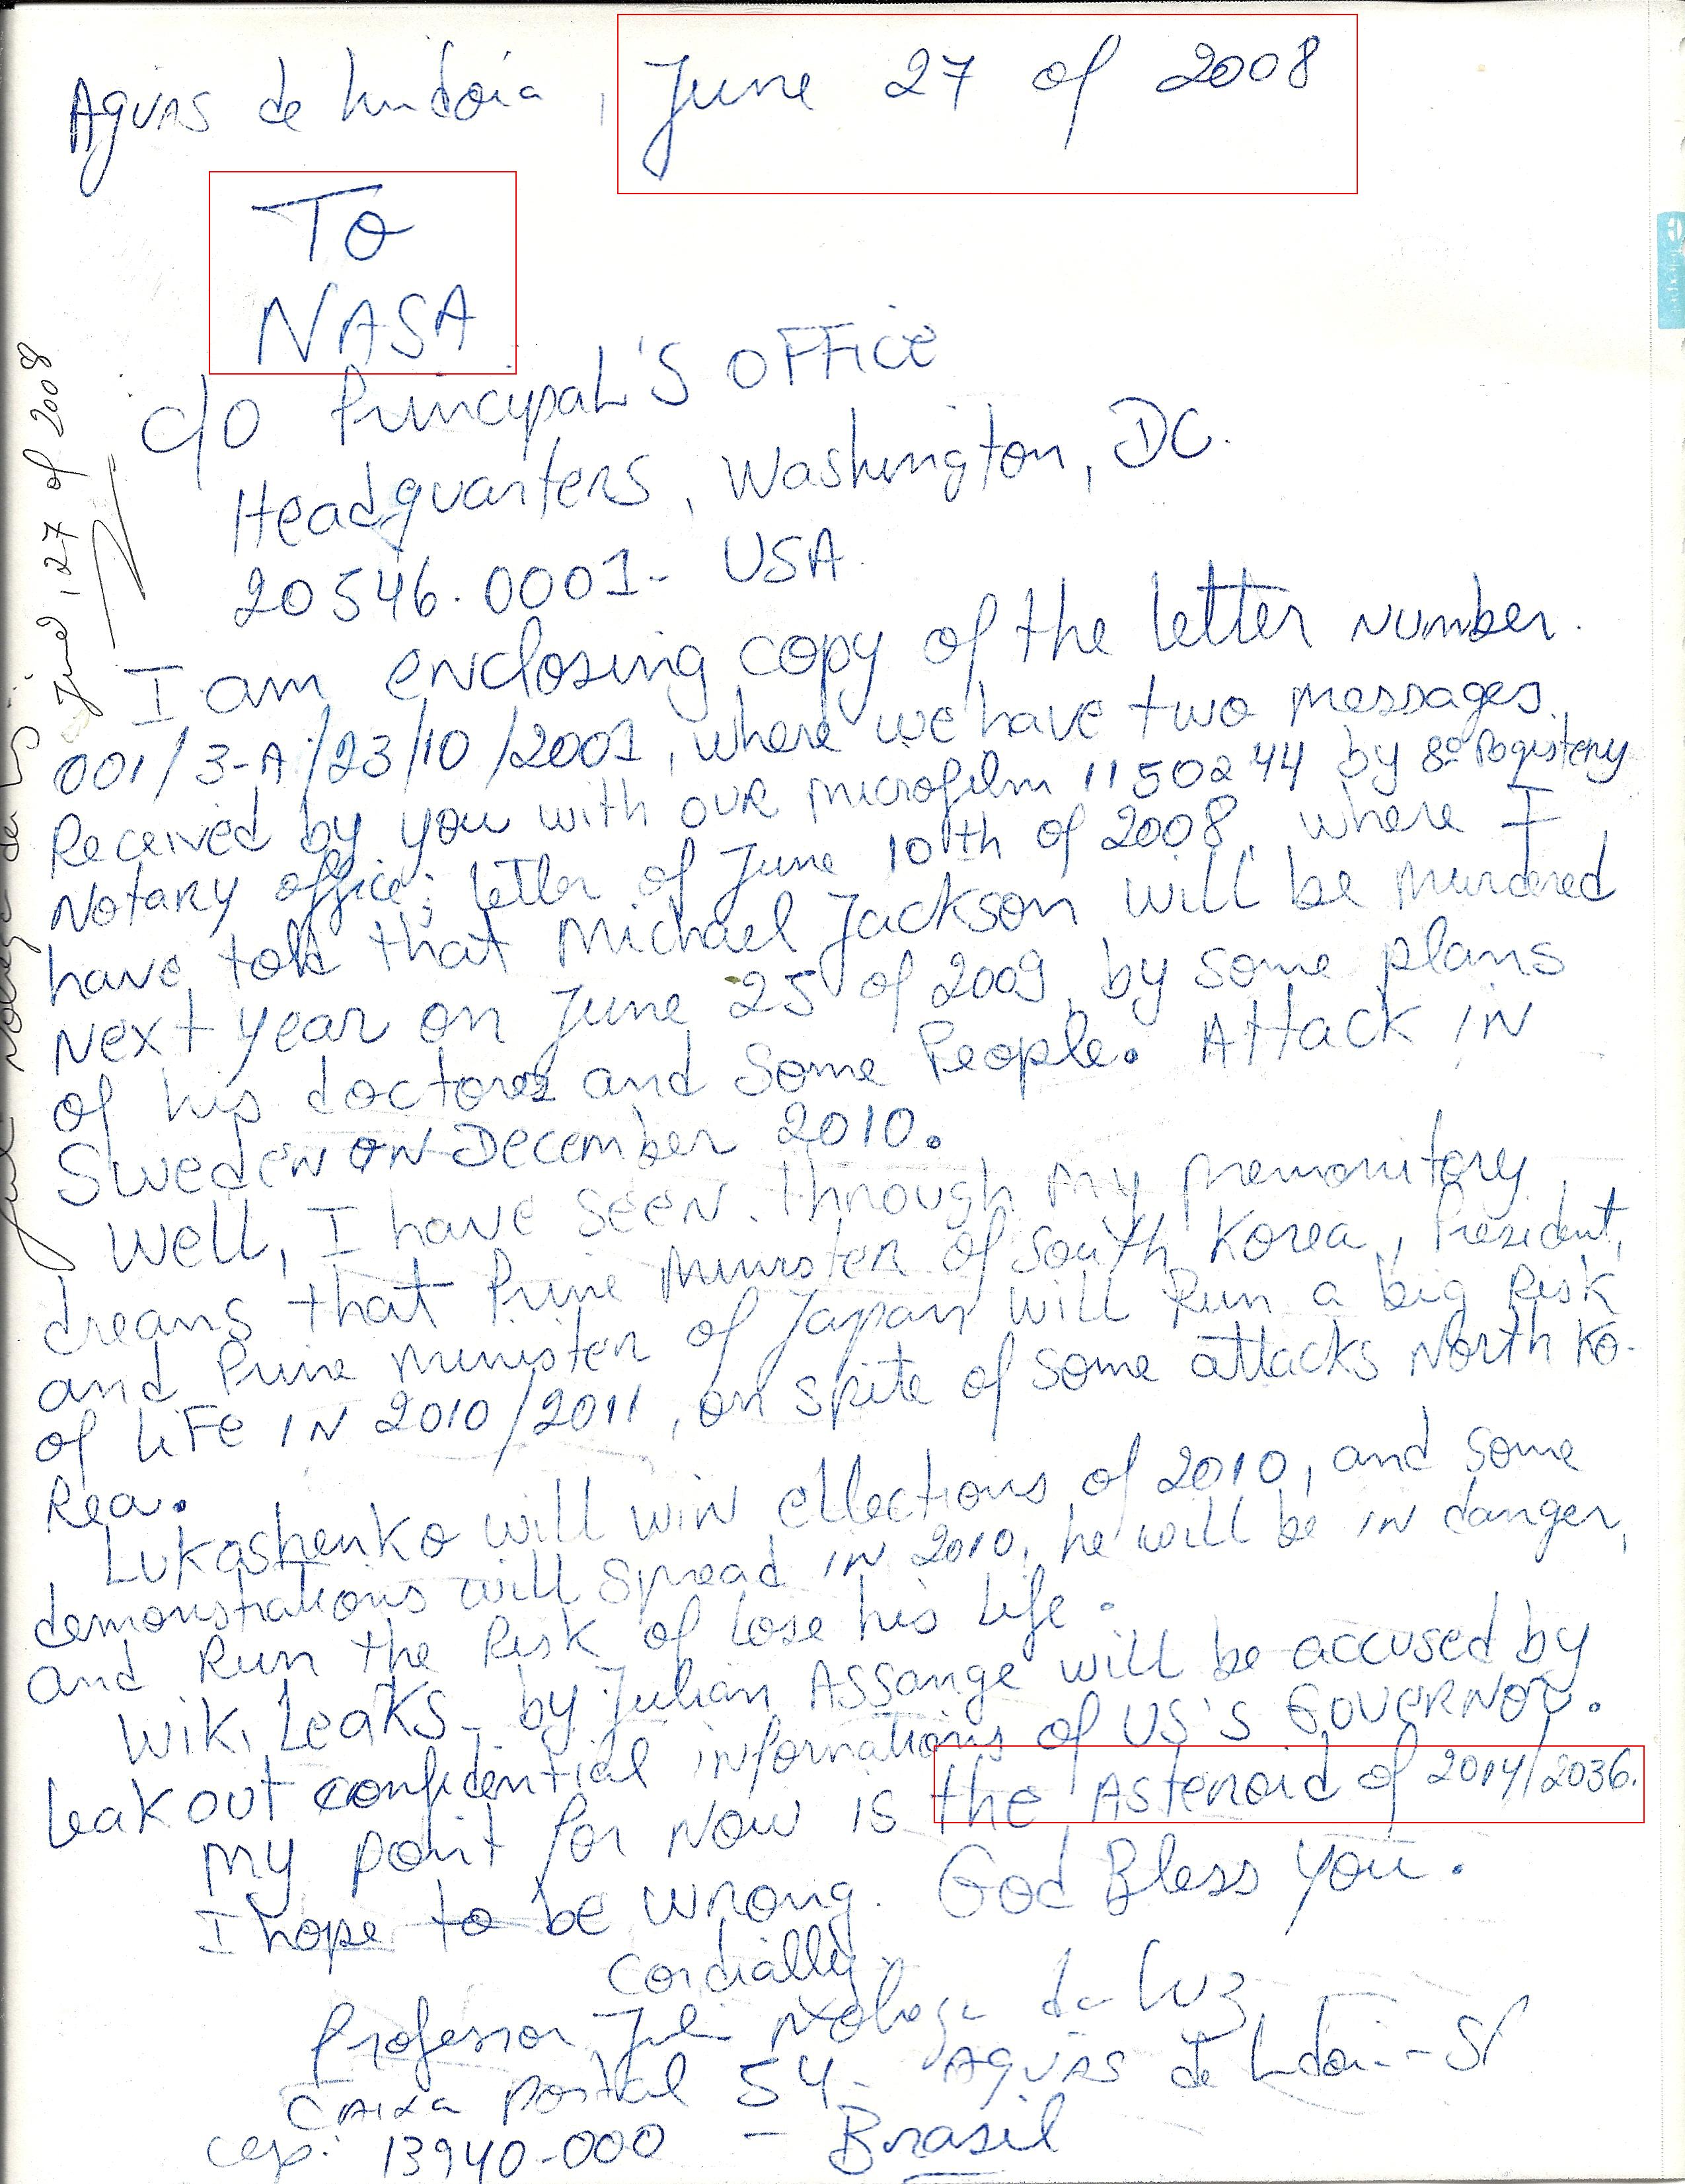 Aguas de Lindóia, June 27 of 2008
To
NASA
c/o Principal's Office
Headquarters, Washington, DC.
20546.0001- USA.
I am enclosing copy of the letter number.
001/3-A/23/10/2001, where we have two messages.
Received by you with our microfilm 1150244 by 8º Registery
Notary office; letter of June 10th of 2008, where I
have told that Michael Jackson will be murdered
Next year on June 25 of 2009, by some plans
of his doctores and some People. Attack in
Sweden on December 2010.
Well, I have seen through my premonitory
dreams that Prime Minister of South Korea, President,
and Prime Minister of Japan will Run a big Risk
of Life in 2010/2011, on spite of some attacks North Ko-
Rea.
Lukashenko will win ellections of 2010, and some
demonstrations will spread in 2010, he will be in danger,
and Run the Risk of lose his life.
Wiki Leaks - by Julian Assange will be accused by
leak out confidential informations of US's Governor.
My point for now is the Asteroid of 2014/2036.
I hope to be wrong. God Bless you.
Cordially
Professor Nobrega da Luz
Caixa postal 54 - Aguas de Lindoia - SP
cep: 13940-000 - Brasil
June, 27 of 2008